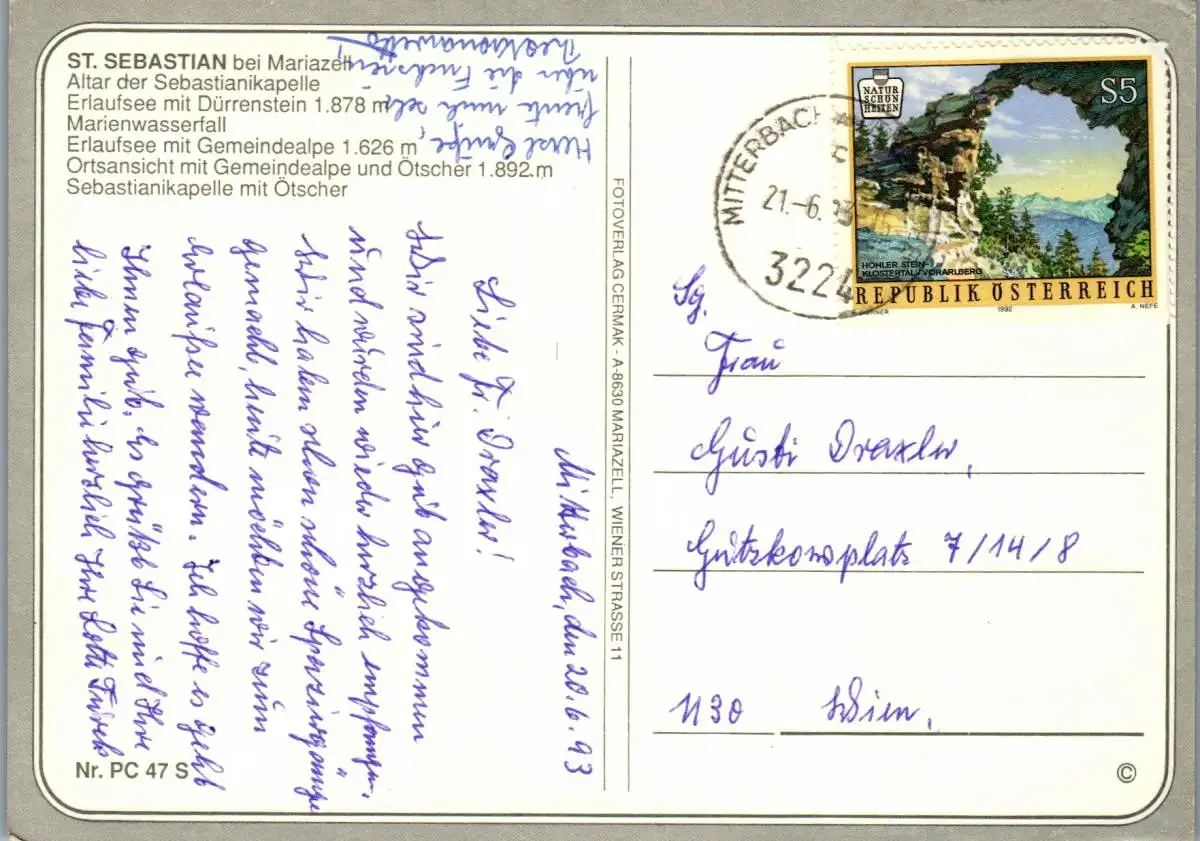 ST. SEBASTIAN bei Mariazell
Altar der Sebastianikapelle
Erlaufsee mit Dürrenstein 1.878 m
Marienwasserfall
Erlaufsee mit Gemeindealpe 1.626 m
Ortsansicht mit Gemeindealpe und Ötscher 1.892 m
Sebastianikapelle mit Ötscher
Mitterbach, den 20.6.93
Liebe Fr. Draxler!
Wir sind hier gut angekommen
und wurden wieder herzlich empfangen.
Wir haben schon schöne Spaziergänge
gemacht, heute möchten wir zum
wandern. Ich hoffe es geht
Ihnen gut. Es grüßt Sie und Ihre
liebe Familie herzlich Ihre Lotte
Herzl Grüße,
freute mich sehr
über die
Nr. PC 47 S
FOTOVERLAG CERMAK - A-8630 MARIAZELL, WIENER STRASSE 11
NATUR
SCHÖN
HEITEN
S5
HOHLER STEIN-
KLOSTERTAL/VORARLBERG
REPUBLIK ÖSTERREICH
1992
A. NEFE
MITTERBACH
c
21.-6.93
3224
Sg.
Frau
Gusti Draxler,
Gutzkowplatz 7/14/8
1130 Wien.
©